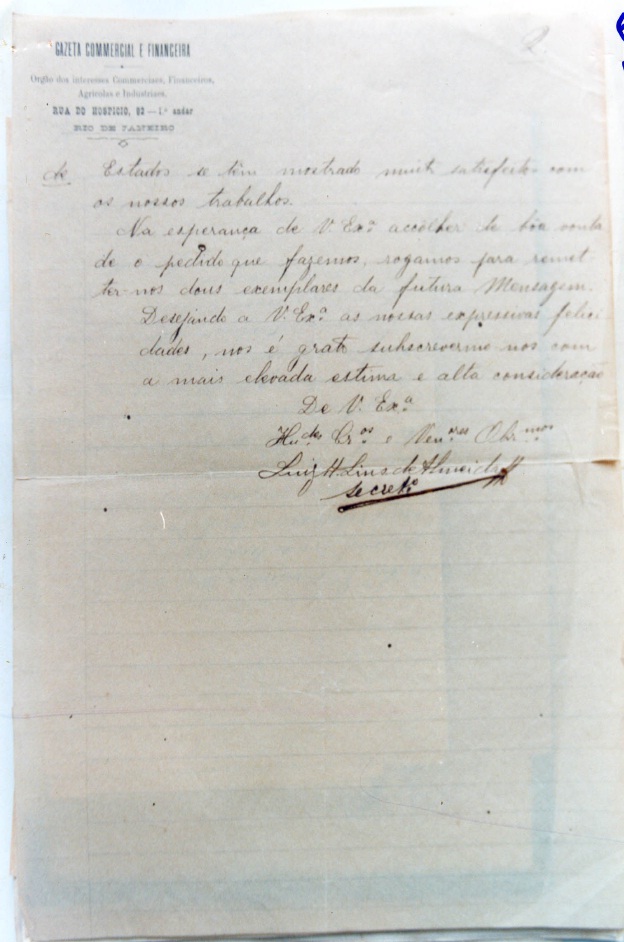 2
GAZETA COMMERCIAL E FINANCEIRA
Orgão dos interesses Commerciaes, Financeiros,
Agricolas e Industriaes.
RUA DO HOSPICIO, 92 — 1.º andar
RIO DE JANEIRO
de Estados se têm mostrado muito satisfeitos com
os nossos trabalhos.
Na esperança de V. Exª accolher de bôa vonta
de o pedido que fazemos, rogamos para remet-
ter-nos dous exemplares da futura Mensagem.
Desejando a V. Exª as nossas expressivas felici
dades, nos é grato subscrevermo-nos com
a mais elevada estima e alta consideração
De V. Exª
Cr.os e Ven.res Obr.mos
Luiz H. Lins de Almeida
secret.º